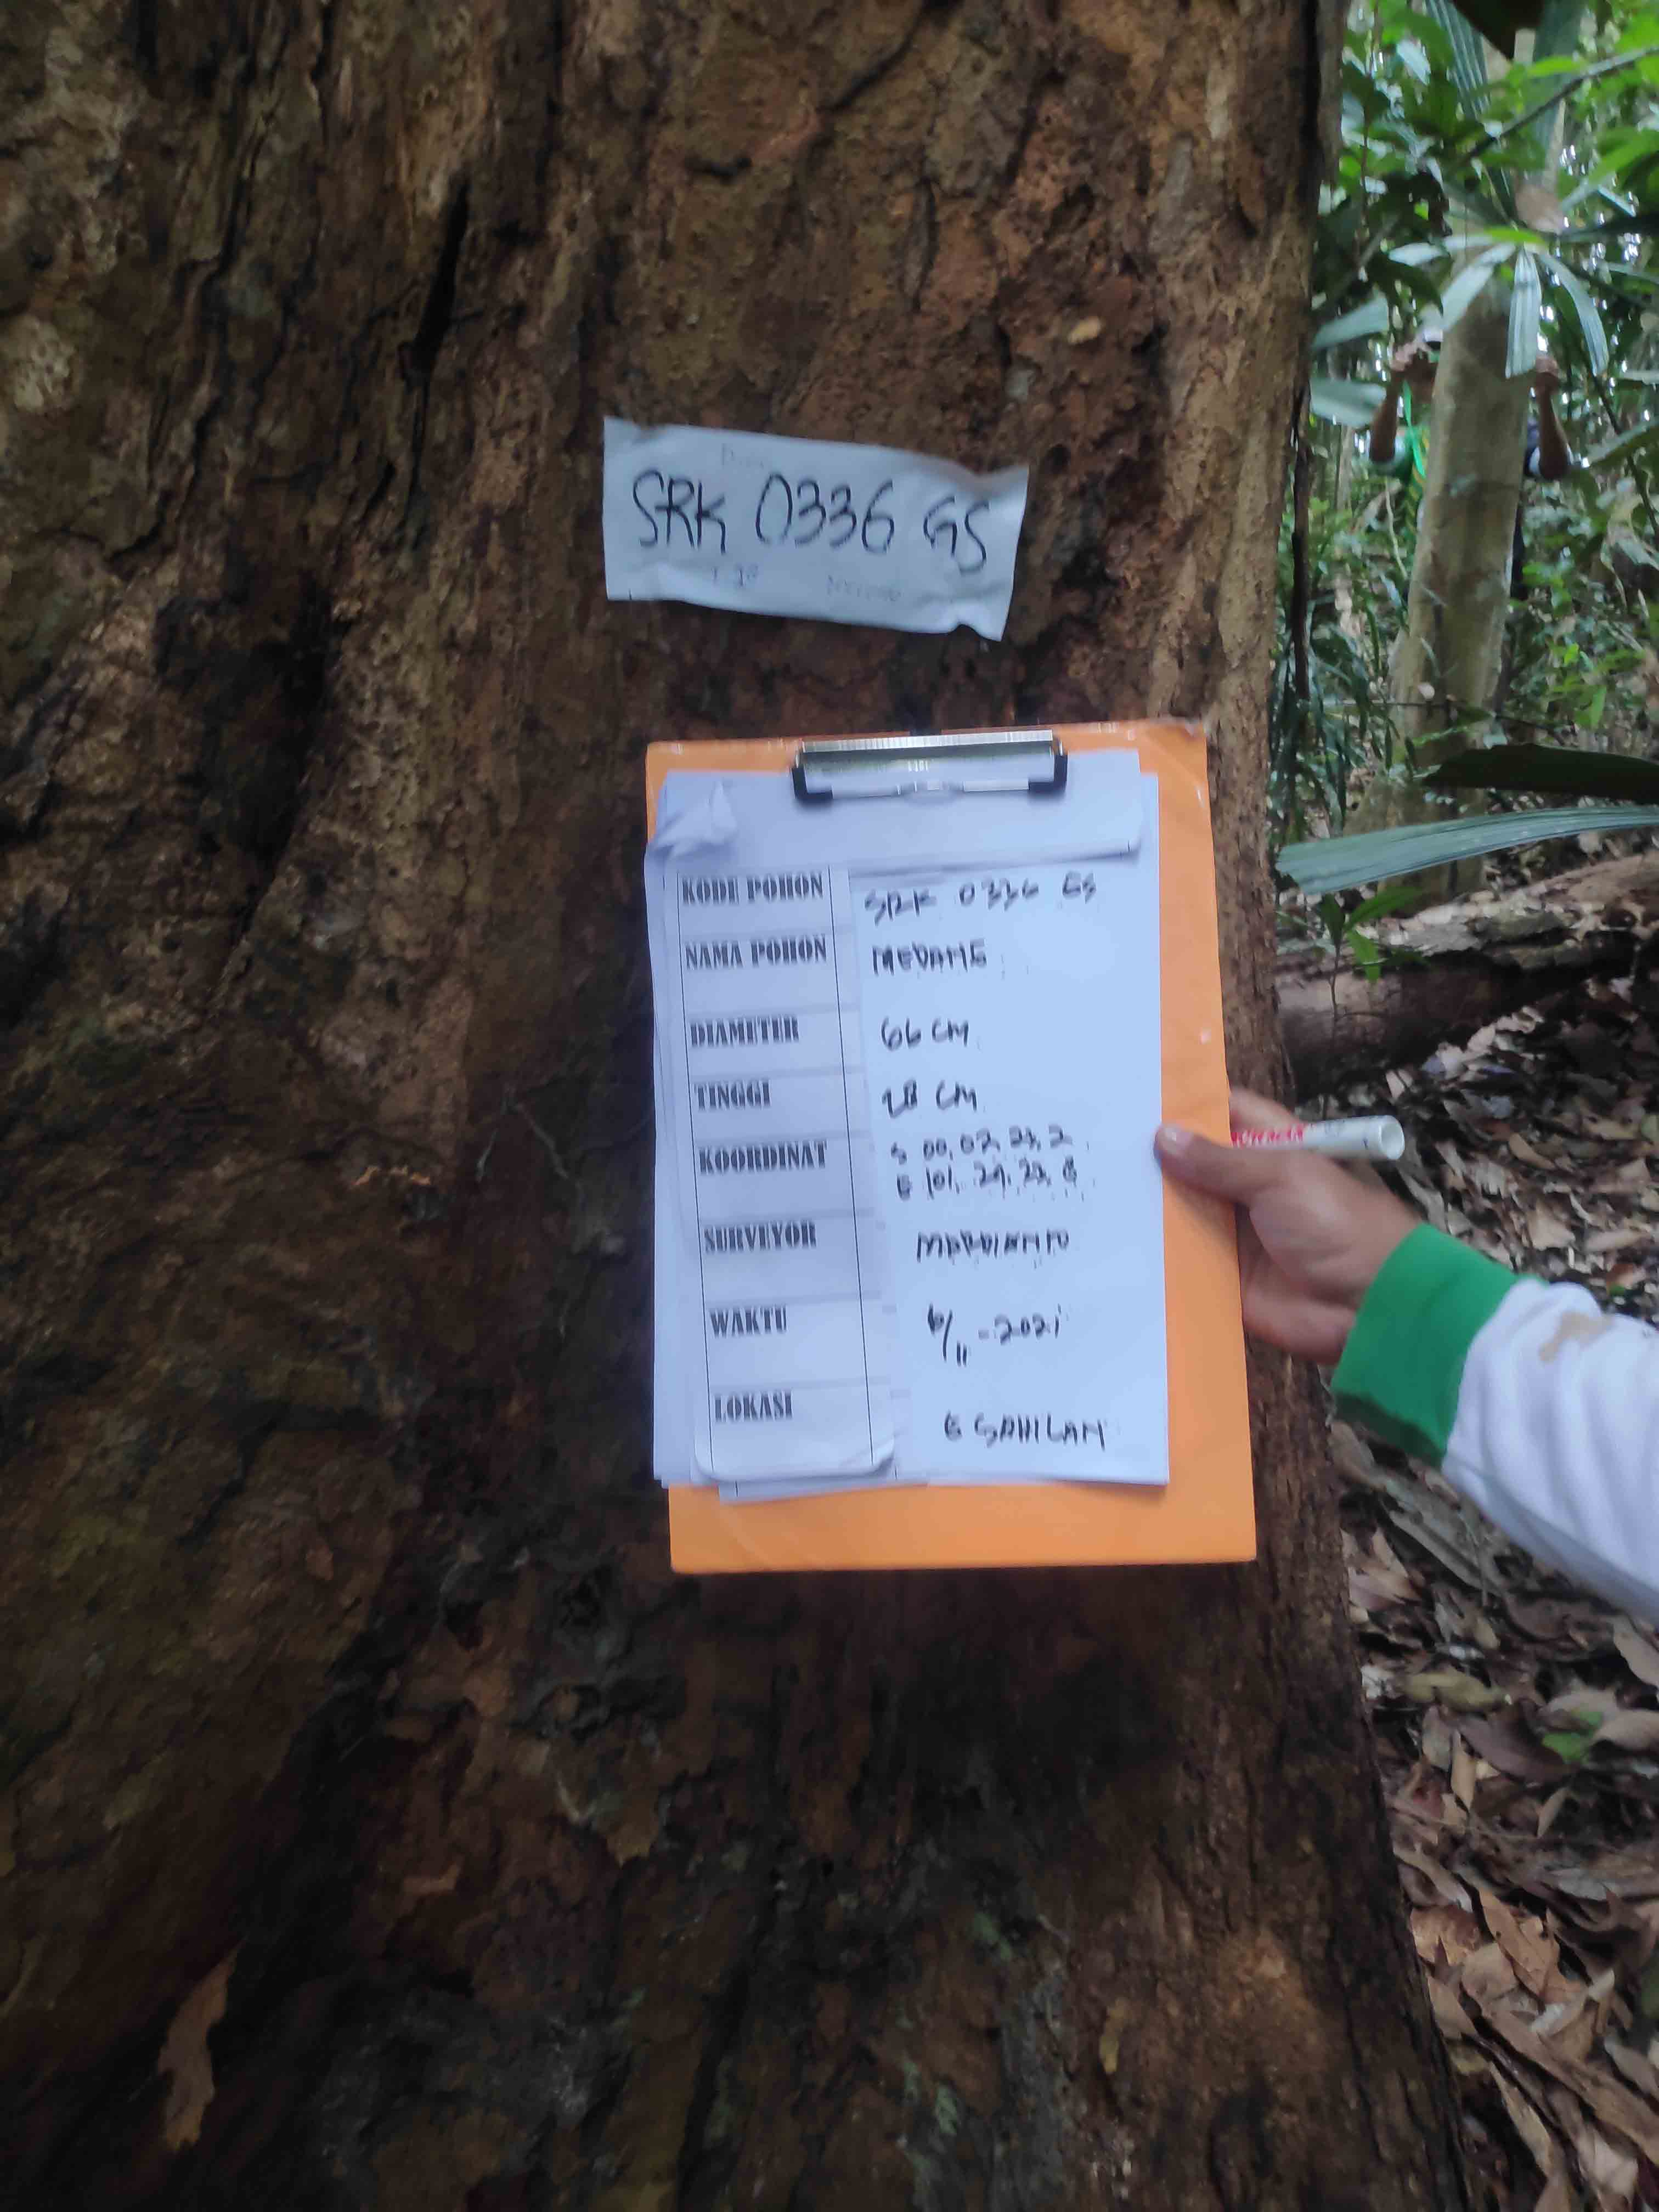 SRK 0336 GS
KODE POHON SRK 0336 GS
NAMA POHON MEDANG
DIAMETER 66 CM
TINGGI 28 CM
KOORDINAT S 00, 02, 23, 2
E 101, 29, 23, 6
SURVEYOR
WAKTU 6/11-2021
LOKASI G SAHILAN